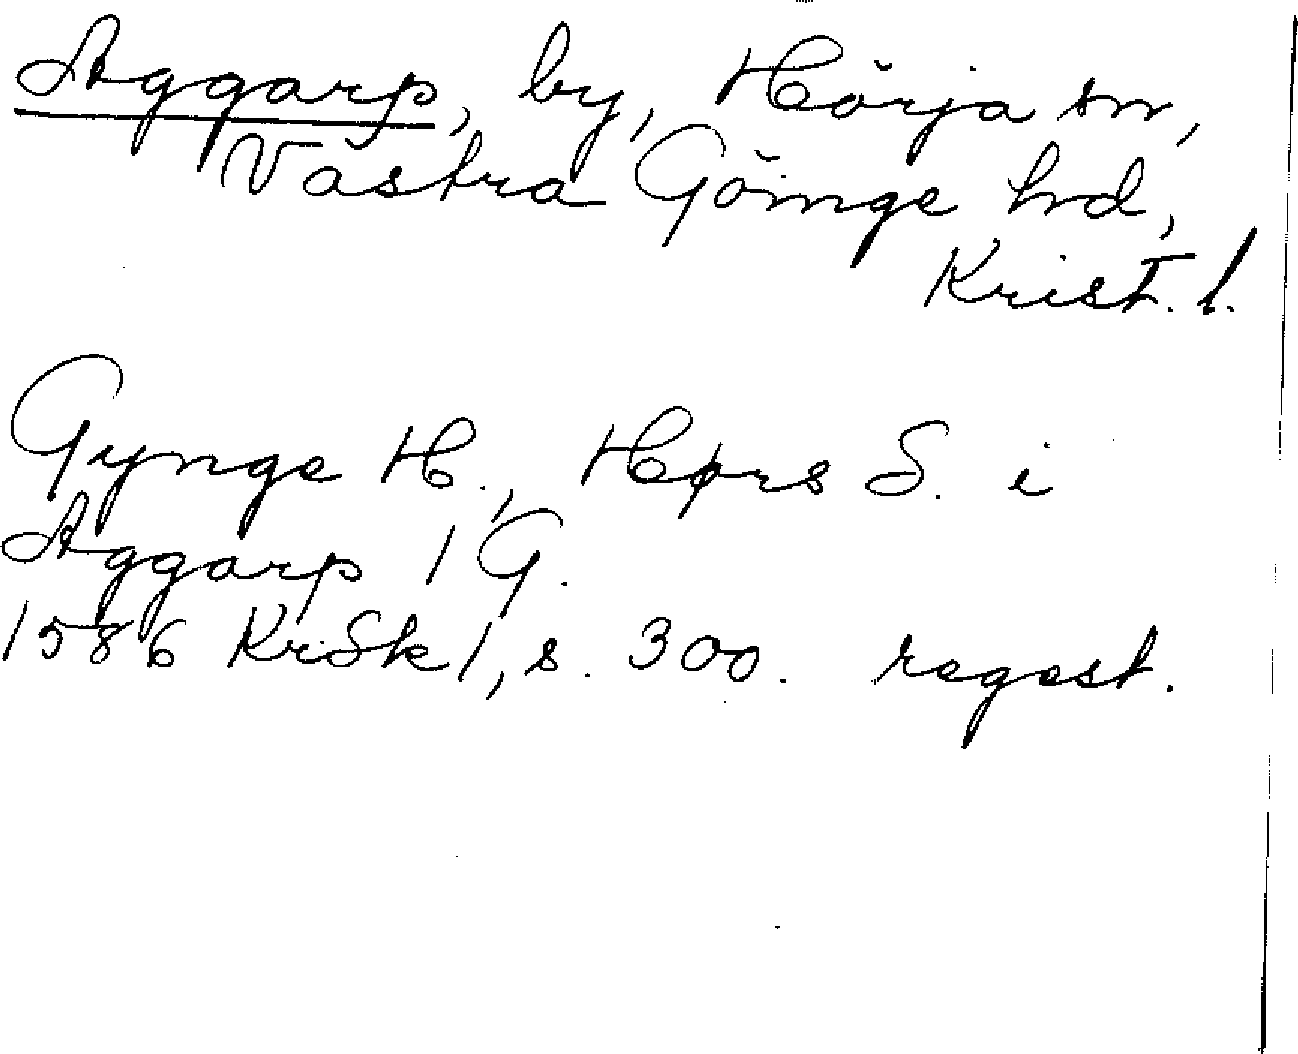 Aggarp, by, Hörja sn,
Västra Göinge hrd,
Krist. l.
Gynge H., Hørs S. i
Aggarp 1 G.
1586 KrSk 1, s. 300. regest.